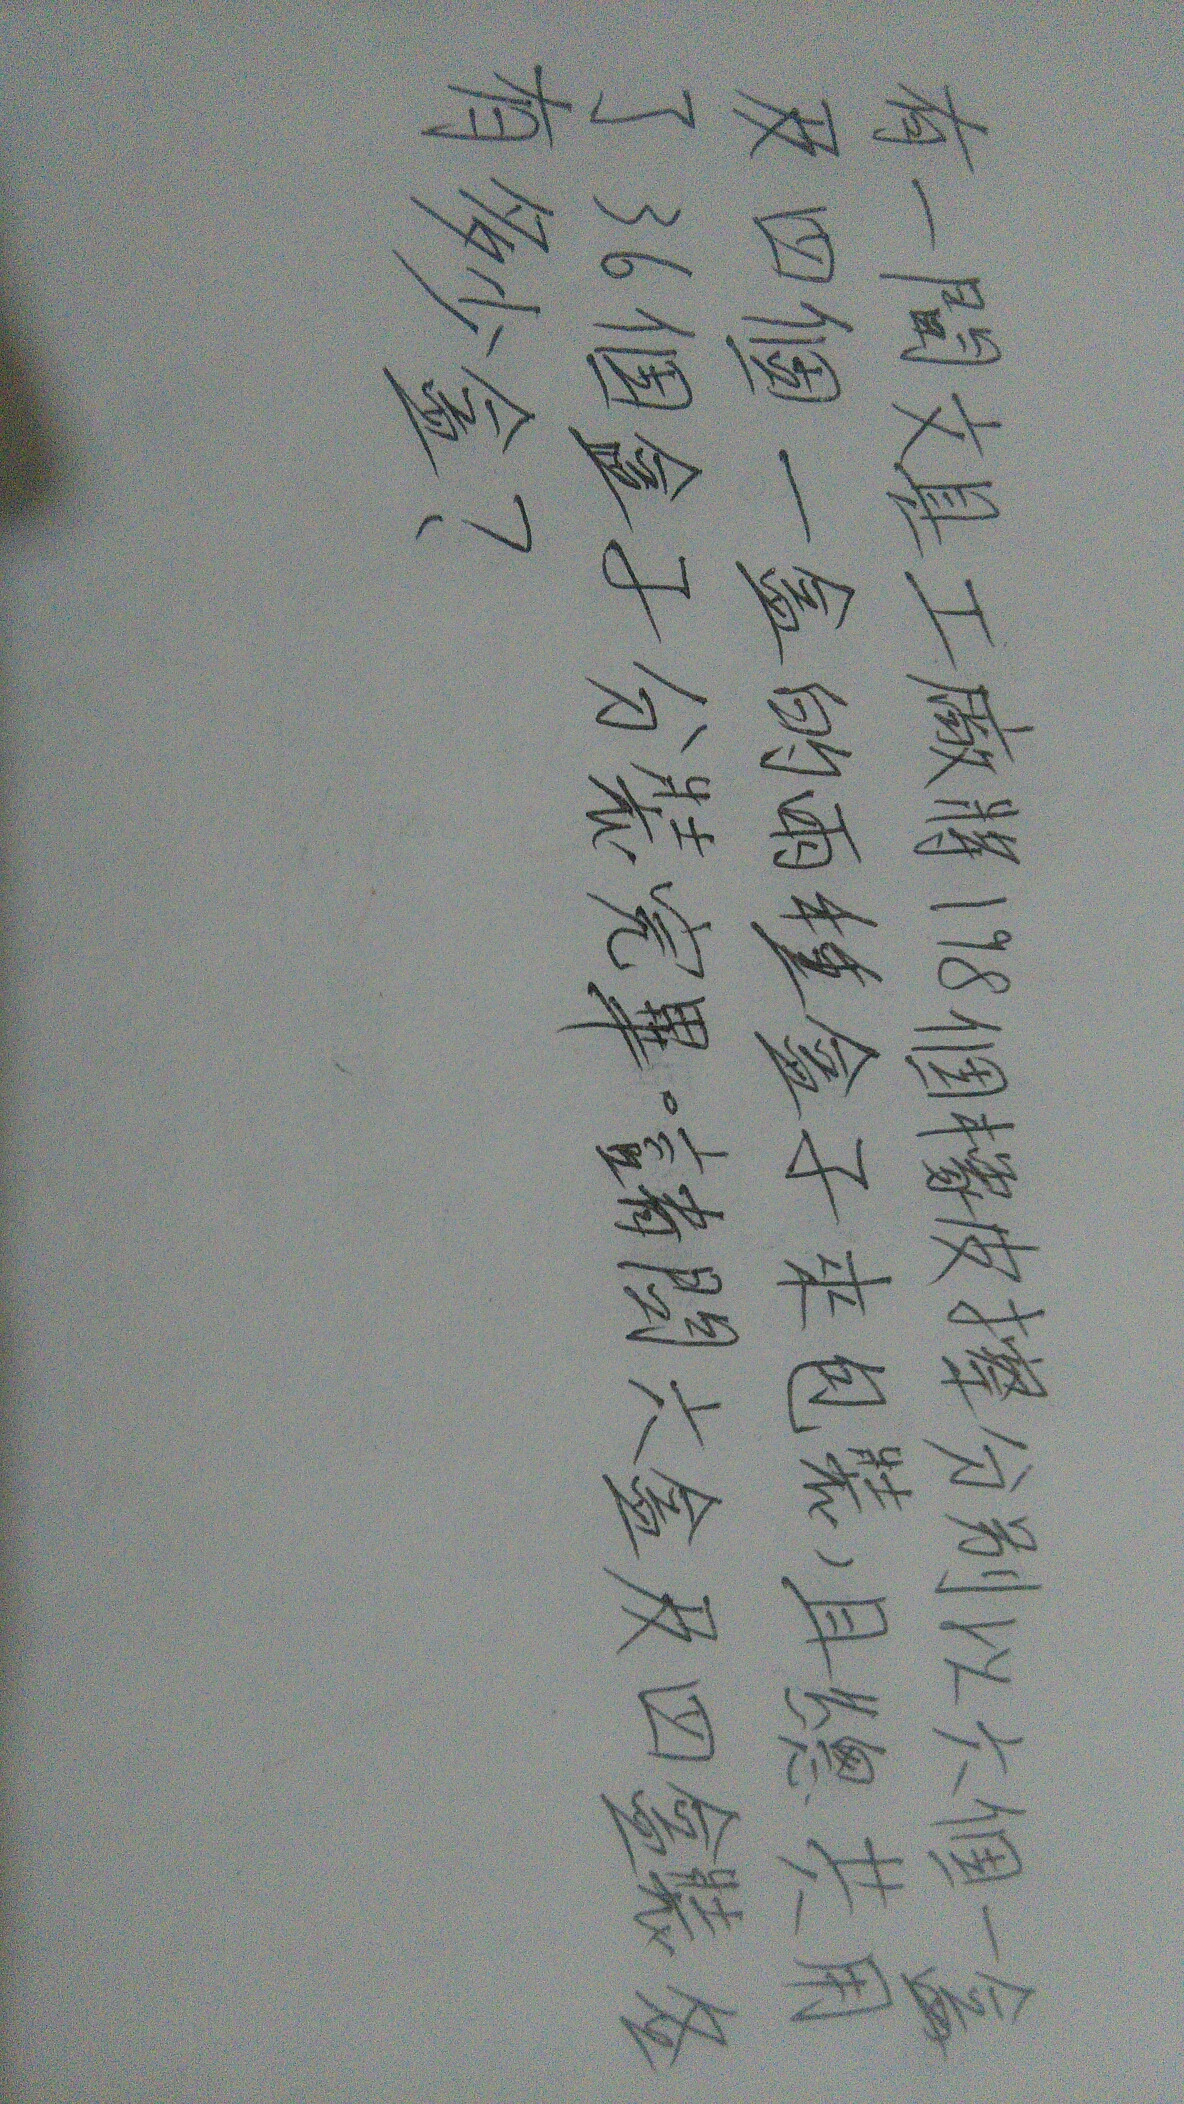 有一間文具工廠將198個橡皮擦分別以六個一盒
及四個一盒的兩種盒子來包裝,且總共用
了36個盒子分裝完畢。請問六盒及四盒裝各
有多少盒?